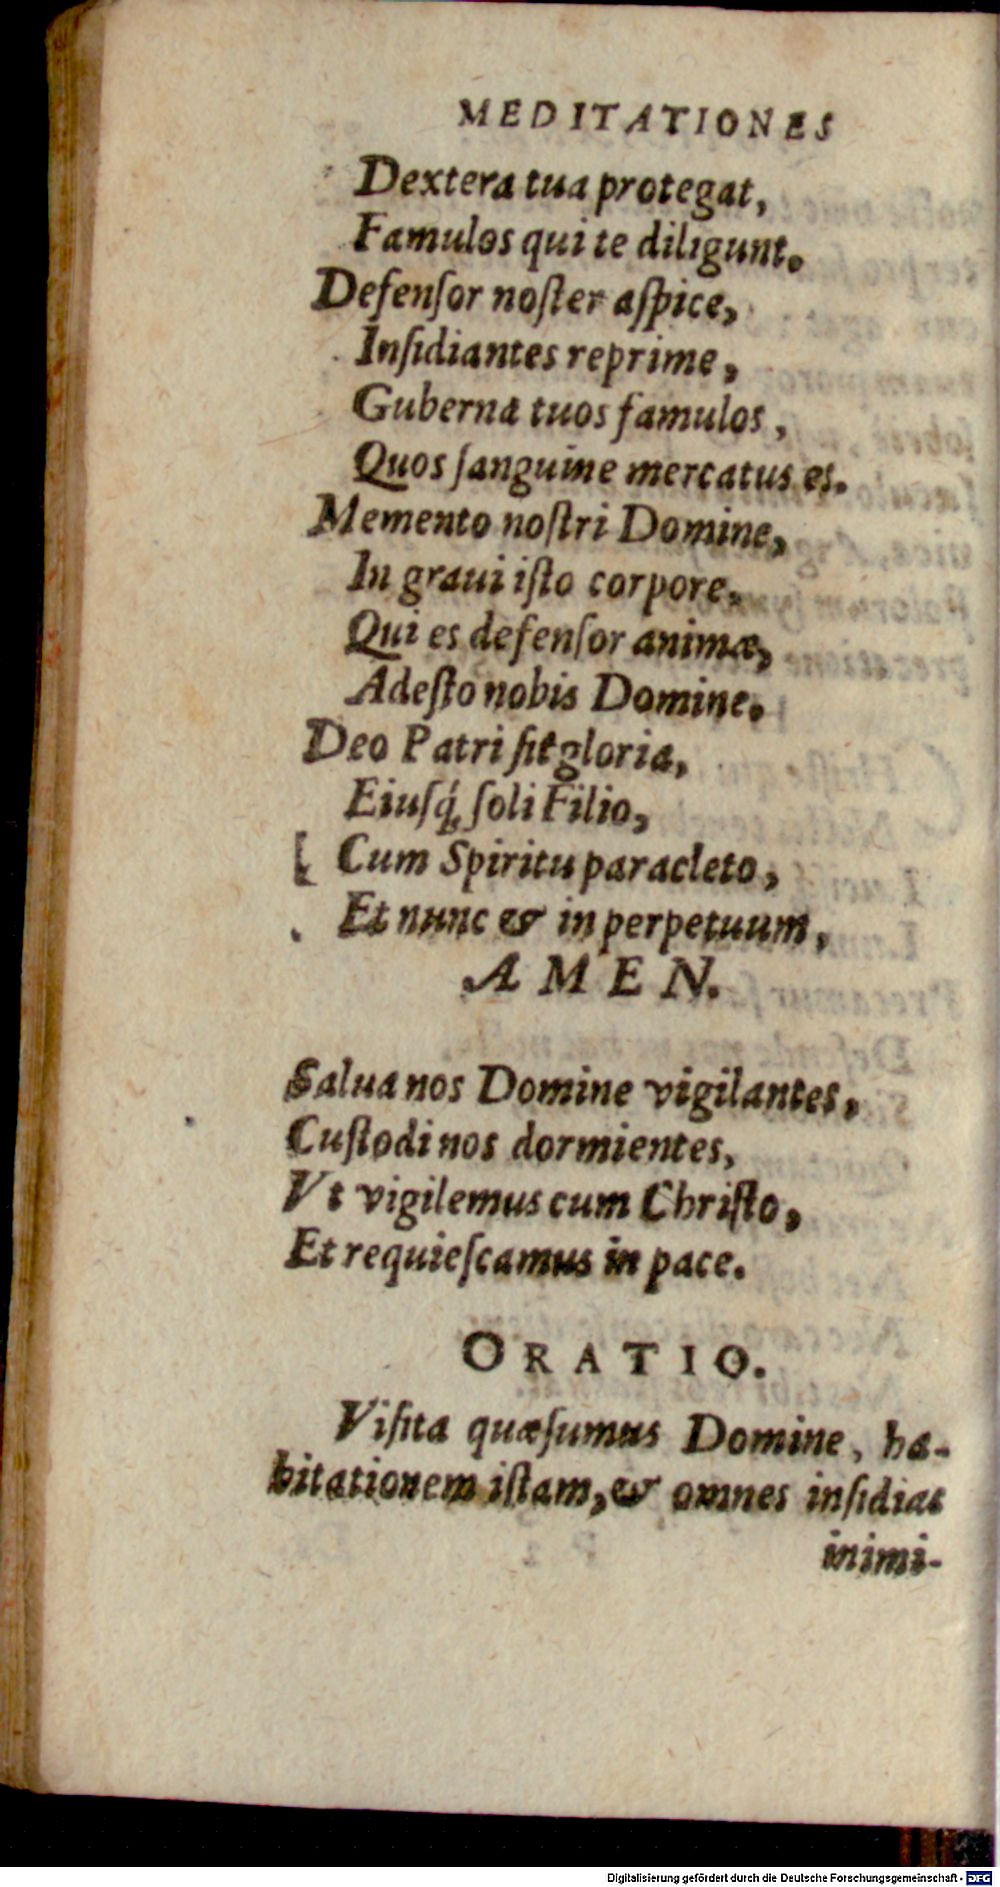 MEDITATIONES
Dextera tua protegat,
Famulos qui te diligunt.
Defenſor noſter aſpice,
Inſidiantes reprime,
Guberna tuos famulos,
Quos ſanguine mercatus es.
Memento noſtri Domine,
In graui iſto corpore,
Qui es defenſor animæ,
Adeſto nobis Domine.
Deo Patri ſit gloria,
Eiuſq́; ſoli Filio,
Cum Spiritu paracleto,
Et nunc & in perpetuum,
AMEN.
Salua nos Domine vigilantes,
Cuſtodi nos dormientes,
Vt vigilemus cum Chriſto,
Et requieſcamus in pace.
ORATIO.
Viſita quæſumus Domine, ha-
bitationem iſtam, & omnes inſidias
inimi-
Digitalisierung gefördert durch die Deutsche Forschungsgemeinschaft - DFG